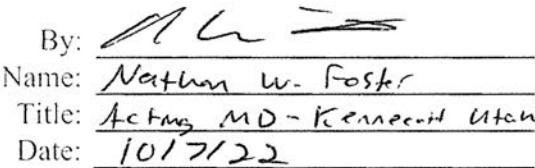 By:
Name: Nathan W. Foster
Title: Acting MD - Kennecott Utah
Date: 10/7/22